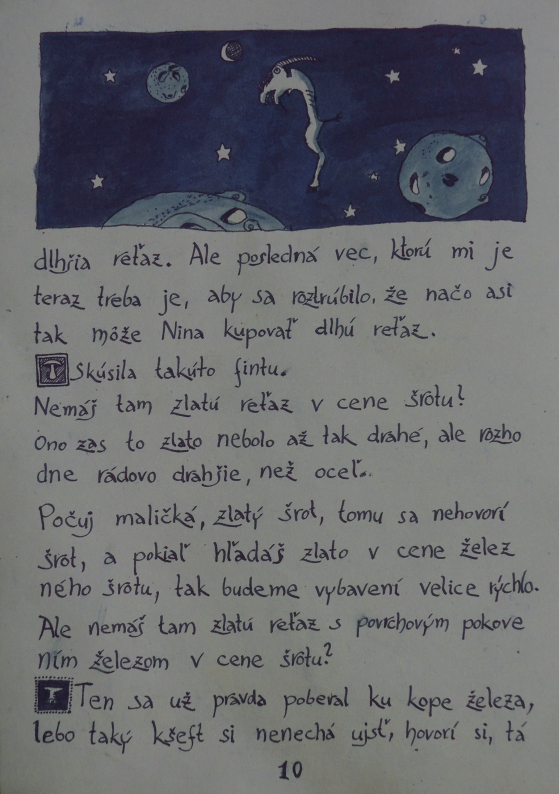 dlhšia reťaz. Ale posledná vec, ktorú mi je
teraz treba je, aby sa roztrúbilo, že načo asi
tak môže Nina kupovať dlhú reťaz.
Skúsila takúto fintu.
Nemáš tam zlatú reťaz v cene šrotu?
Ono zas to zlato nebolo až tak drahé, ale rozho
dne rádovo drahšie, než oceľ.
Počuj maličká, zlatý šrot, tomu sa nehovorí
šrot, a pokiaľ hľadáš zlato v cene želez
ného šrotu, tak budeme vybavení velice rýchlo.
Ale nemáš tam zlatú reťaz s povrchovým pokove
ním železom v cene šrotu?
Ten sa už pravda poberal ku kope železa,
lebo taký kšeft si nenechá ujsť, hovorí si, tá
10